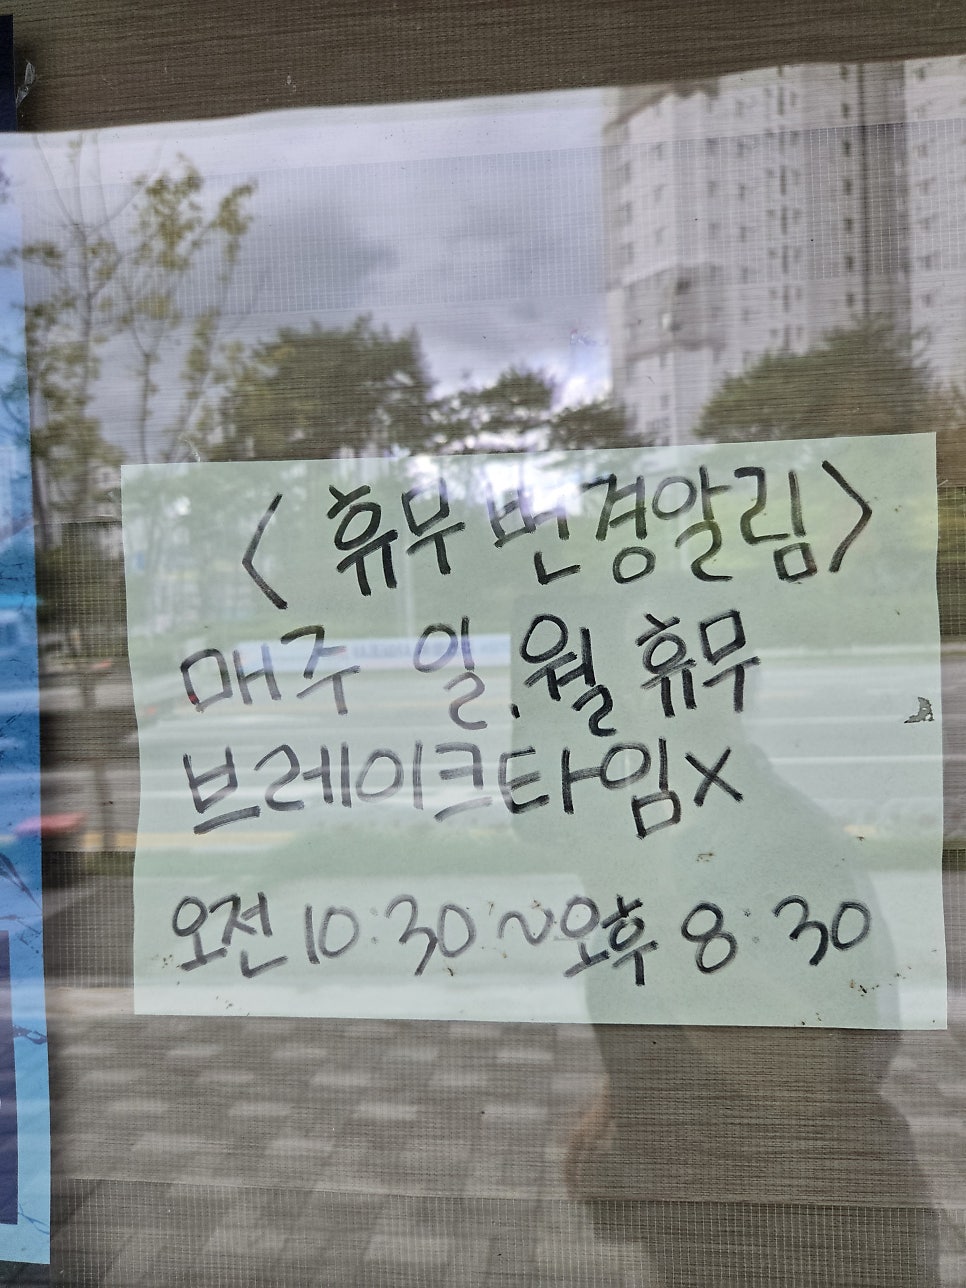 <휴무 변경알림>
매주 일.월 휴무
브레이크타임x
오전 10:30~오후 8:30